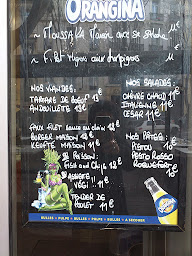 ORANGINA
~ MOUSSAKA Maison avec sa salade 11€
~ Filet Mignon aux champignons 11€
NOS VIANDES:
TARTARE DE BOEUF 13€
ANDOUILLETTE 13€
FAUX FILET 
BURGER MAISON
KEFTA MAISON
POISSON:
FISH and Chips 12€
ASSIETTE
VEGI !! 11€
TENDER DE
POULET 11€
NOS SALADES:
CHÈVRE CHAUD 11€
ITALIENNE 11€
CESAR 11€
NOS PÂTES:
PISTOU 10€
PESTO ROSSO 10€
ROQUEFORT 10€
BULLES • PULPE • BULLES • PULPE • BULLES • A SECOUER